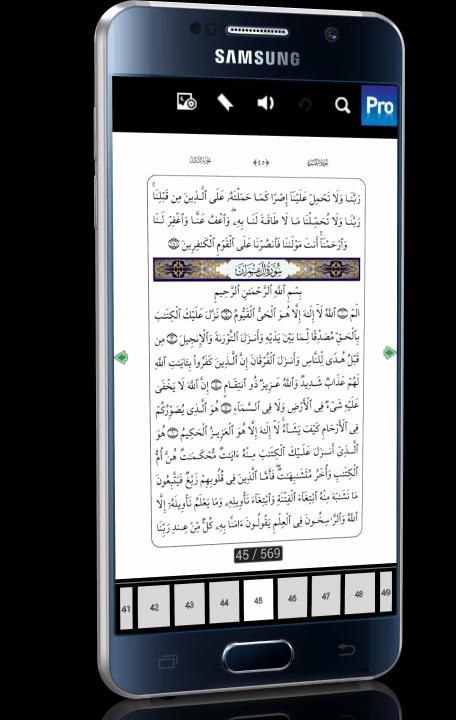 SAMSUNG
Pro
﴿٤٥﴾
رَبَّنَا وَلَا تَحْمِلْ عَلَيْنَا إِصْرًا كَمَا حَمَلْتَهُۥ عَلَى ٱلَّذِينَ مِن قَبْلِنَا ۚ
رَبَّنَا وَلَا تُحَمِّلْنَا مَا لَا طَاقَةَ لَنَا بِهِۦ ۖ وَٱعْفُ عَنَّا وَٱغْفِرْ لَنَا
وَٱرْحَمْنَآ أَنتَ مَوْلَىٰنَا فَٱنصُرْنَا عَلَى ٱلْقَوْمِ ٱلْكَٰفِرِينَ
سُورَةُ آلِ عِمْرَانَ
بِسْمِ ٱللَّهِ ٱلرَّحْمَٰنِ ٱلرَّحِيمِ
الٓمٓ ٱللَّهُ لَآ إِلَٰهَ إِلَّا هُوَ ٱلْحَىُّ ٱلْقَيُّومُ نَزَّلَ عَلَيْكَ ٱلْكِتَٰبَ
بِٱلْحَقِّ مُصَدِّقًا لِّمَا بَيْنَ يَدَيْهِ وَأَنزَلَ ٱلتَّوْرَىٰةَ وَٱلْإِنجِيلَ مِن
قَبْلُ هُدًى لِّلنَّاسِ وَأَنزَلَ ٱلْفُرْقَانَ إِنَّ ٱلَّذِينَ كَفَرُوا۟ بِـَٔايَٰتِ ٱللَّهِ
لَهُمْ عَذَابٌ شَدِيدٌ وَٱللَّهُ عَزِيزٌ ذُو ٱنتِقَامٍ إِنَّ ٱللَّهَ لَا يَخْفَىٰ
عَلَيْهِ شَىْءٌ فِى ٱلْأَرْضِ وَلَا فِى ٱلسَّمَآءِ هُوَ ٱلَّذِى يُصَوِّرُكُمْ
فِى ٱلْأَرْحَامِ كَيْفَ يَشَآءُ ۚ لَآ إِلَٰهَ إِلَّا هُوَ ٱلْعَزِيزُ ٱلْحَكِيمُ هُوَ
ٱلَّذِىٓ أَنزَلَ عَلَيْكَ ٱلْكِتَٰبَ مِنْهُ ءَايَٰتٌ مُّحْكَمَٰتٌ هُنَّ أُمُّ
ٱلْكِتَٰبِ وَأُخَرُ مُتَشَٰبِهَٰتٌ ۖ فَأَمَّا ٱلَّذِينَ فِى قُلُوبِهِمْ زَيْغٌ فَيَتَّبِعُونَ
مَا تَشَٰبَهَ مِنْهُ ٱبْتِغَآءَ ٱلْفِتْنَةِ وَٱبْتِغَآءَ تَأْوِيلِهِۦ وَمَا يَعْلَمُ تَأْوِيلَهُۥٓ إِلَّا
ٱللَّهُ وَٱلرَّٰسِخُونَ فِى ٱلْعِلْمِ يَقُولُونَ ءَامَنَّا بِهِۦ كُلٌّ مِّنْ عِندِ رَبِّنَا
45 / 569
41 42 43 44 45 46 47 48 49